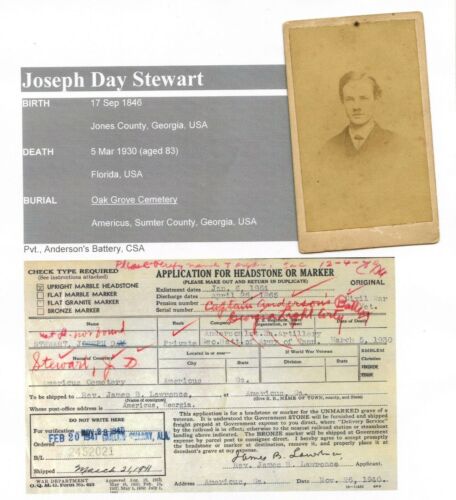 Joseph Day Stewart
BIRTH 17 Sep 1846
Jones County, Georgia, USA
DEATH 5 Mar 1930 (aged 83)
Florida, USA
BURIAL Oak Grove Cemetery
Americus, Sumter County, Georgia, USA
Pvt., Anderson's Battery, CSA
CHECK TYPE REQUIRED
(See instructions attached)
UPRIGHT MARBLE HEADSTONE
FLAT MARBLE MARKER
FLAT GRANITE MARKER
BRONZE MARKER
APPLICATION FOR HEADSTONE OR MARKER
(PLEASE MAKE OUT AND RETURN IN DUPLICATE)
ORIGINAL
Enlistment dates
Discharge dates April 26, 1865
Pension number
Captain Anderson's Battery
Georgia Light Arty
Civil War
Vet.
Name
Rank
STEWART, JOSEPH DAY
Private
March 5, 1930
Stewart, J D
Name of Cemetery
Located in or near
If World War Veteran
EMBLEM
Americus Cemetery
Americus
Ga.
To be shipped to Rev. James B. Lawrence, at Americus, Ga.
(Name of consignee)
Americus, Georgia.
DO NOT WRITE HERE
For verification
FEB 20 1941
Ordered
B/L 2452021
Shipped March 21, 1941
This application is for a headstone or marker for the UNMARKED grave of a
veteran. It is understood the Government STONE will be furnished and shipped
freight prepaid at Government expense to you direct, where "Delivery Service"
of the railroad is available; otherwise to nearest railroad station or steamboat
landing above indicated. The BRONZE MARKER will be shipped at Government
expense by parcel post to consignee direct. I hereby agree to promptly
accept the headstone or marker at destination, remove it, and properly place it
at decedent's grave at my expense.
James B. Lawrence
Rev. James B. Lawrence
Address Americus, Ga. Date Nov. 26, 1940.
WAR DEPARTMENT
O. Q. M. G. Form No. 623